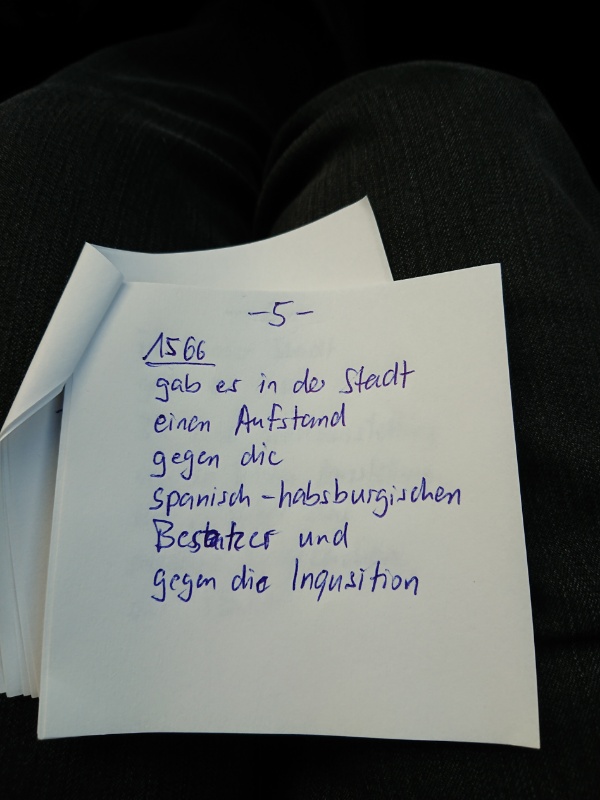 -5-
1566
gab es in der Stadt
einen Aufstand
gegen die
spanisch-habsburgischen
Besatzer und
gegen die Inqusition